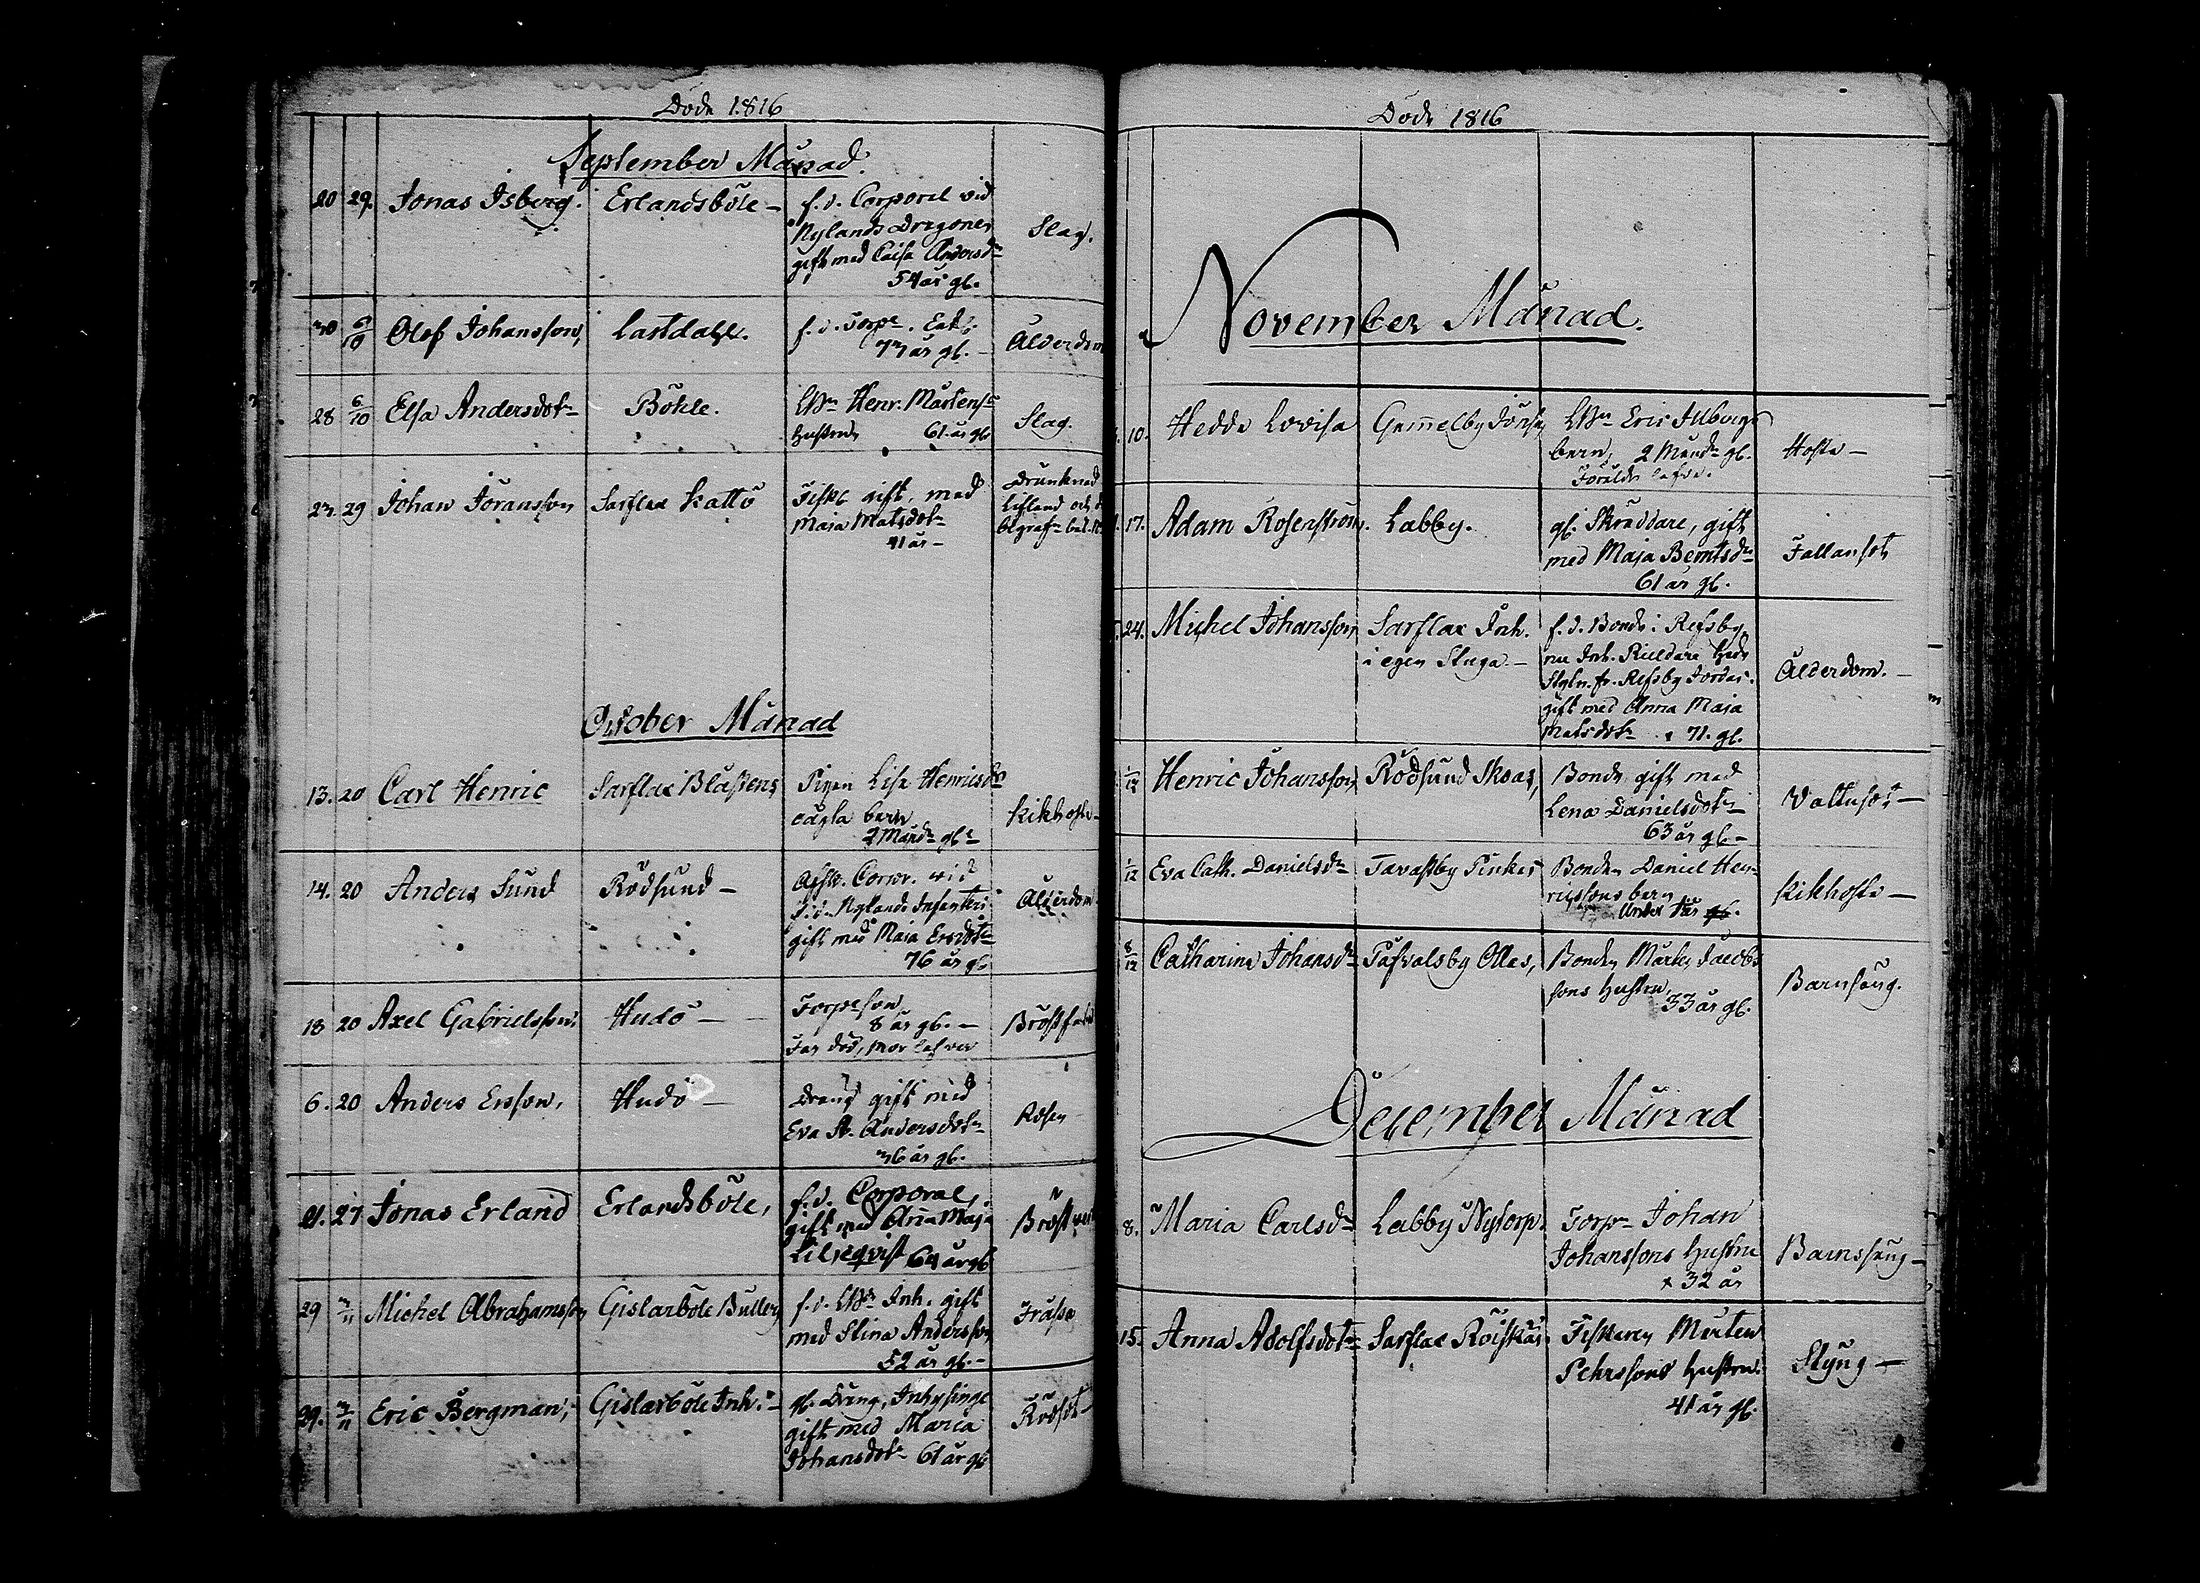 Döde 1816
September Månad.
20 29. Jonas Isberg. Erlandsböle – f. d. Corporal vid
Nylands Dragoner
gift med Caisa Andersdr
54 år gl.
Slag.
30 6/10 Olof Johansson, Lastdahl. f. d. Torpr. Enkl.
77 år gl. –
Ålderdom
28 6/10 Elsa Andersdotr Böhle. LBn Henr. Mårtenss
hustru 61. år gl.
Slag.
27. 29 Johan Göransson Sarflax Kattö Fisk. gift med
Maja Matsdotr
41 år –
Drunknad
October Månad
13. 20 Carl Henric Sarflax Blåssens Pigan Lisa Henricsdr
oägta barn
2 Månadr gl.
Kikhosta –
14. 20 Anders Sund Rödsund – Afsk. Corpr. vid
f. d. Nylands Infanteri
gift med Maja Ersdotr
76 år gl.
Ålderdom.
18 20 Axel Gabrielsson. Hudö – Torpeson
8 år gl. –
Far död, mor lefver
Bröstfeber
6. 20 Anders Ersson, Hudö – Dräng gift med
Eva St. Andersdotr
36 år gl.
Rosen
21. 27 Jonas Erland Erlandsböle, f. d. Corporal,
gift med Anna Maja
Liljeqvist 64 år gl.
Bröst
29 3/11 Michel Abrahamsson Gislarböle Butters f. d. LBr Inh. gift
med Stina Andersson
52 år gl. –
Fråssa
29. 3/11 Eric Bergman, Gislarböle Inh. – gl. Dräng, Inhysinge
gift med Maria
Johansdotr 61 år gl.
Rödsot –
Döde 1816
November Månad.
10. Hedda Lovisa Gammelby Jönses LBn Eric Illbergs
barn, 2 Månadr gl.
Föräldr lefva.
Hosta –
17. Adam Rosenström. Labby. gl. Skräddare, gift
med Maja Berntsdr
61 år gl.
Fallansot
24. Michel Johansson Sarflax Inh.
i egen Stuga. – f. d. Bonde i Refsby
nu Inh.
gift med Anna Maja
Matsdotr 71. gl.
Ålderdom. –
1/12 Henric Johansson Rödsund Skoas, Bonde gift med
Lena Danielsdotr
63 år gl. –
Vattusot –
1/12 Eva Cath. Danielsdr Tavastby Pinkas Bonden Daniel Hen-
ricssons barn
under 1 år gl.
Kikhosta –
8/12 Catharina Johansdr Påsvalsby Olles, Bonden Mårten Jacobs
sons hustru,
33 år gl.
Barnsäng.
December Månad
8. Maria Carlsdr Labby Nytorp. Torpr Johan
Johanssons hustru
32 år
Barnsäng –
15. Anna Adolfsdotr Sarflax Röiskär Fiskaren Mårten
Pehrssons hustru.
41 år gl.
Styng –